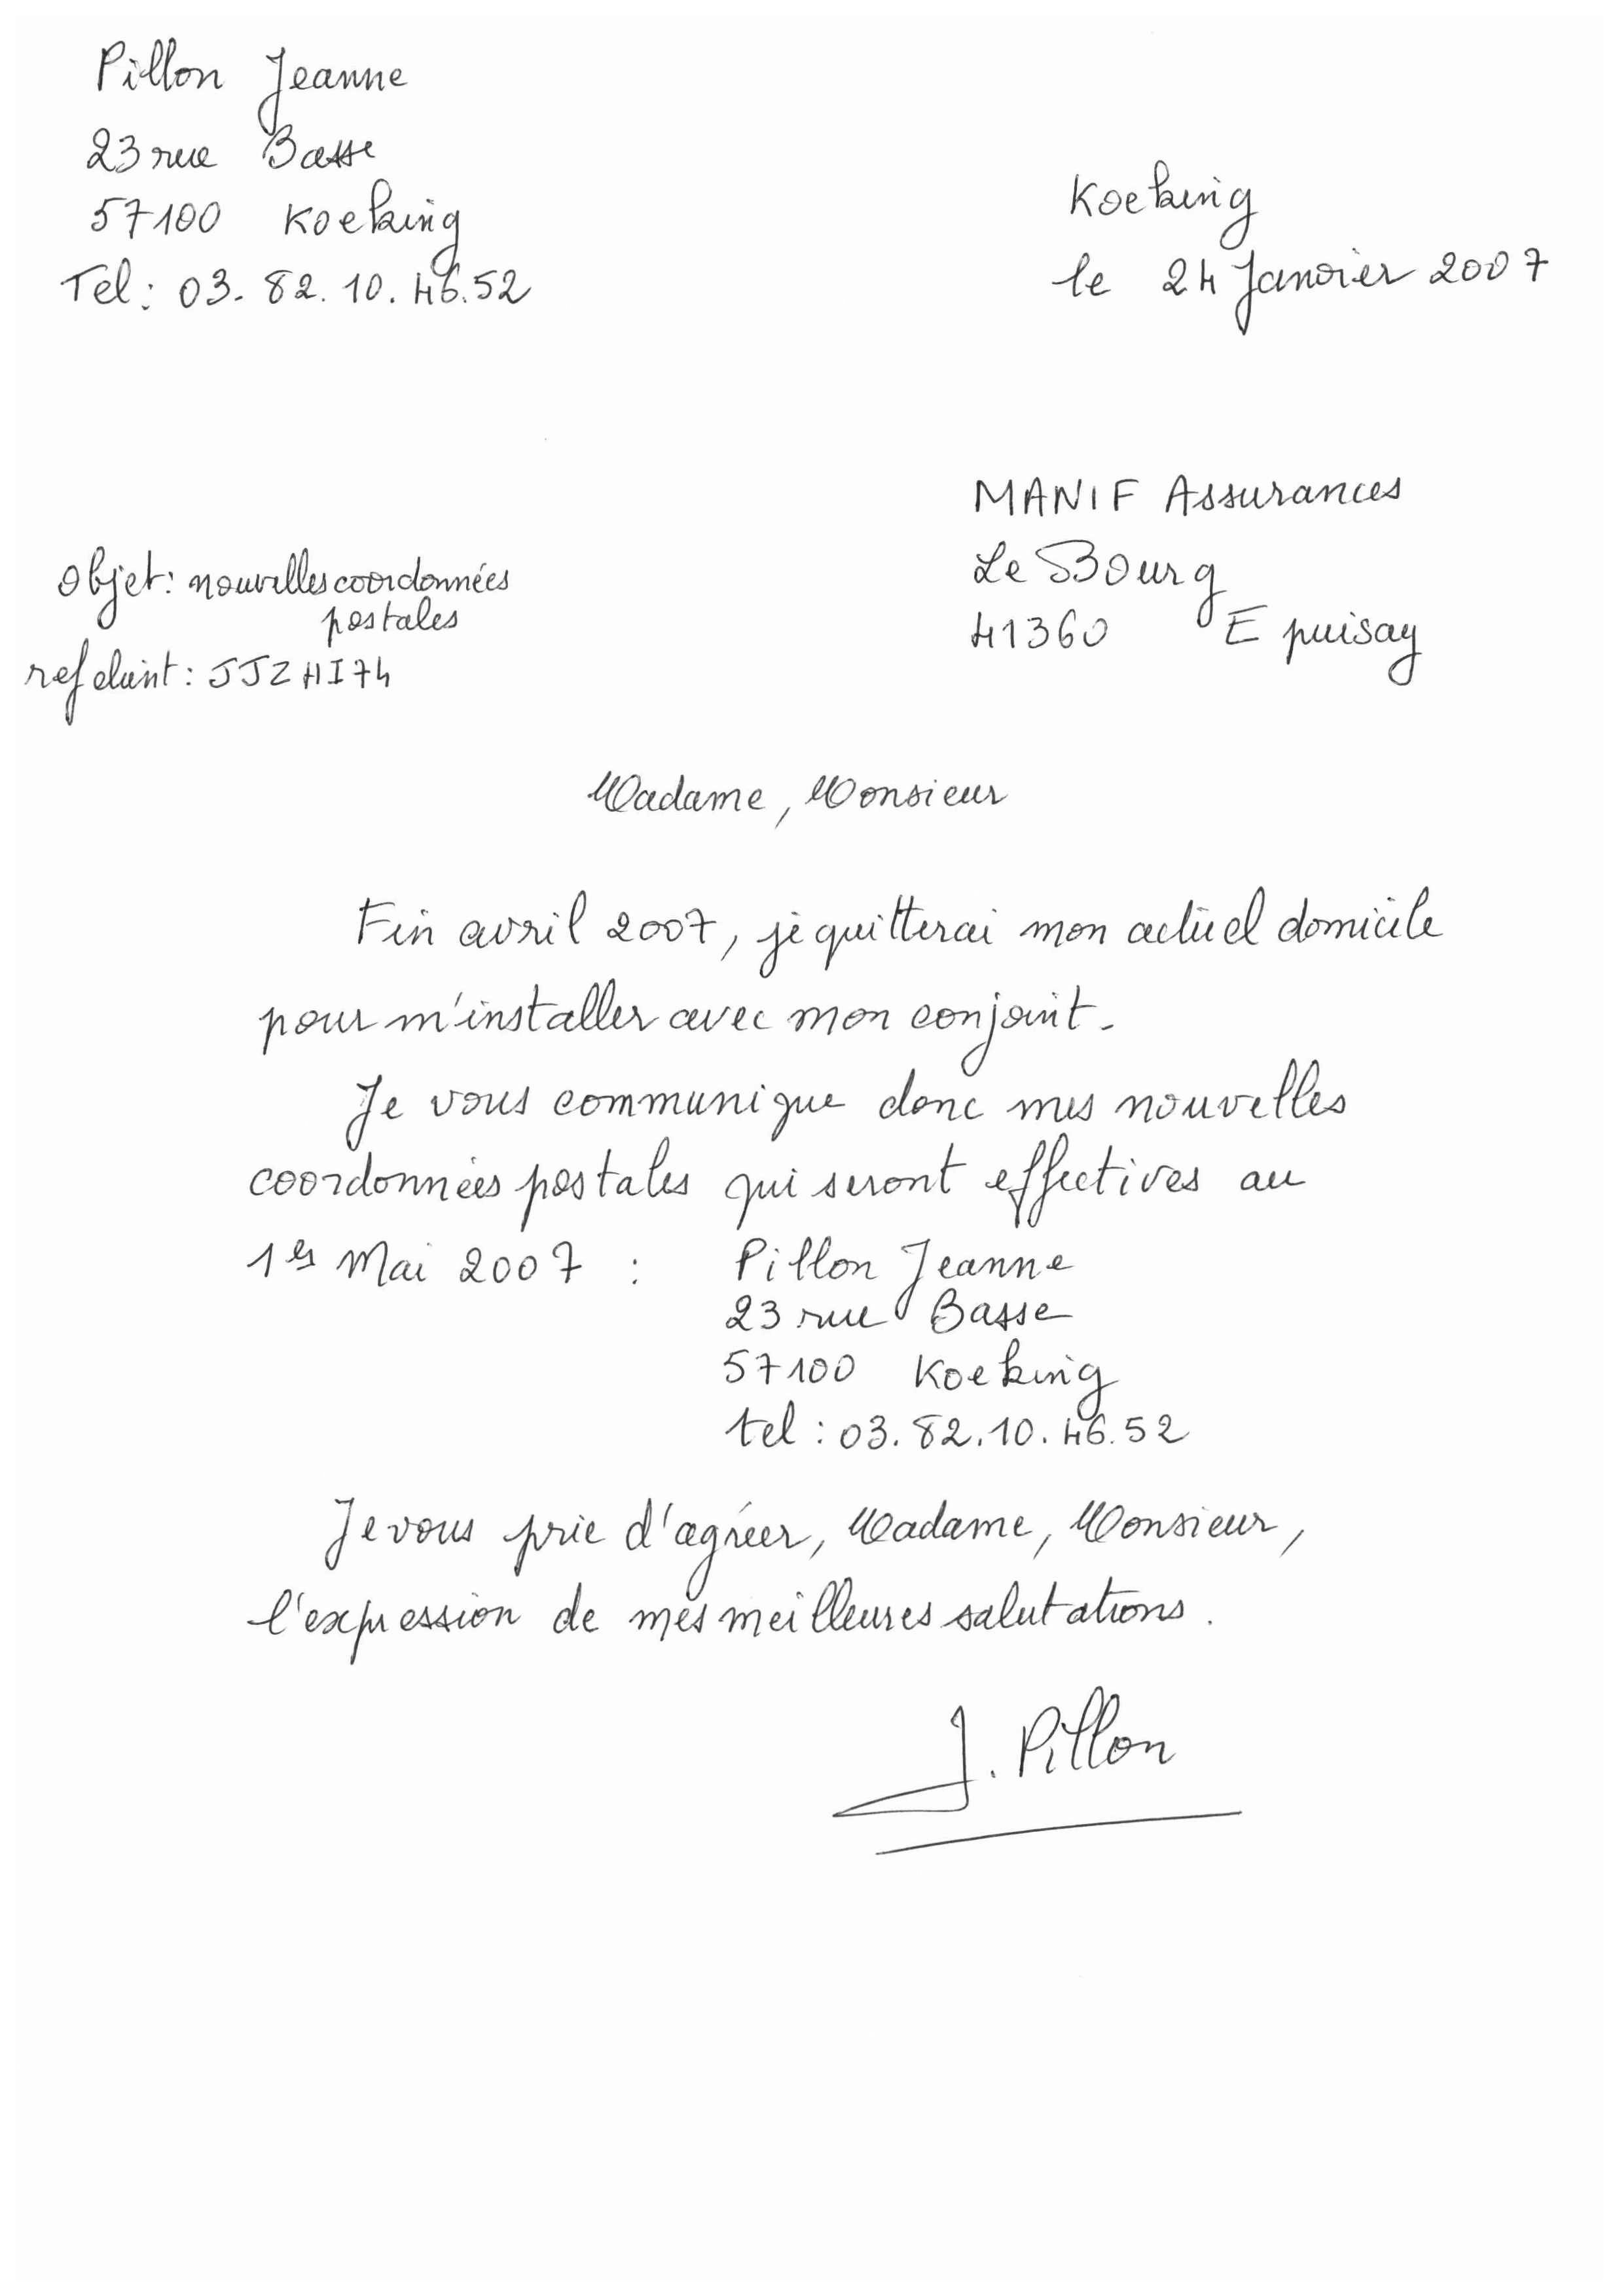 Pillon Jeanne
23 rue Basse
57100 Koeking
Tel : 03. 82. 10. 46. 52
Koeking
le 24 Janvier 2007
MANIF Assurances
Le Bourg
41360 Epuisay
Objet : nouvelles coordonnées
postales
ref client : JJZHI74
Madame, Monsieur
Fin avril 2007, je quitterai mon actuel domicile
pour m'installer avec mon conjoint.
Je vous communique donc mes nouvelles
coordonnées postales qui seront effectives au
1er Mai 2007 : Pillon Jeanne
23 rue Basse
57100 Koeking
tel : 03. 82. 10. 46. 52
Je vous prie d'agréer, Madame, Monsieur,
l'expression de mes meilleures salutations.
J. Pillon